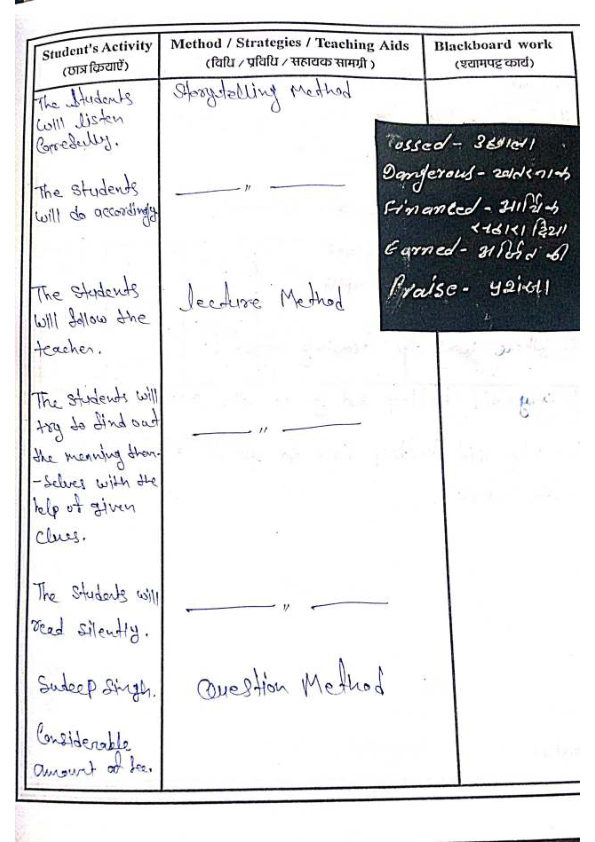 Student's Activity
(छात्र क्रियाएँ)
Method / Strategies / Teaching Aids
(विधि / प्रविधि / सहायक सामग्री )
Blackboard work
(श्यामपट्ट कार्य)
The Students
will listen
Carefully.
Storytelling Method
Tossed - उछाला
Dangerous - खतरनाक
Financed - आर्थिक
सहारा दिया
Earned - अर्जित की
Praise - प्रशंसा
The Students
will do accordingly
— " —
The Students
will follow the
teacher.
lecture Method
The students will
try to find out
the meaning them-
-selves with the
help of given
clues.
— " —
The Students will
read silently.
— " —
Sudeep Singh.
Question Method
Considerable
amount of fee.